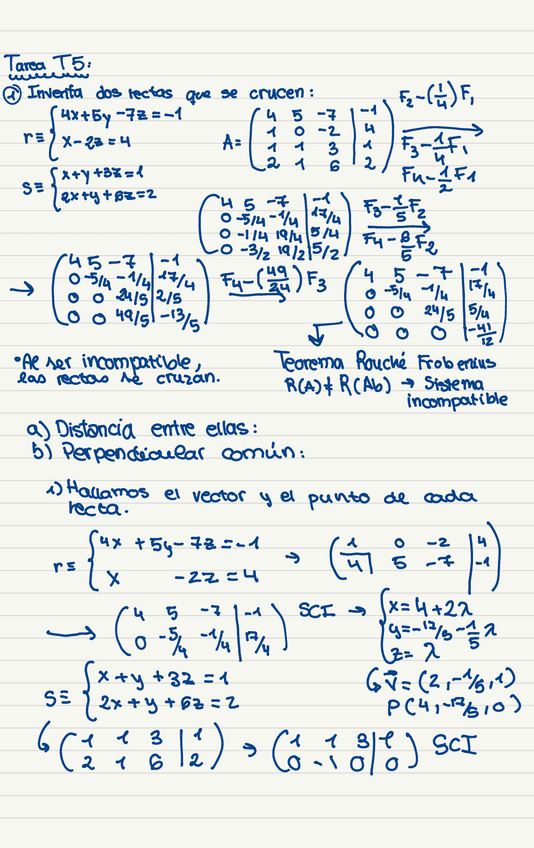 Tarea T5:
① Inventa dos rectas que se crucen:
r≡ { 4x+5y-7z=-1
x-2z=4
s≡ { x+y+3z=1
2x+y+6z=2
A= ( 4 5 -7 | -1
1 0 -2 | 4
1 1 3 | 1
2 1 6 | 2 )
F2-(1/4)F1
F3-1/4F1
F4-1/2F1
( 4 5 -7 | -1
0 -5/4 -1/4 | 17/4
0 -1/4 19/4 | 5/4
0 -3/2 19/2 | 5/2 )
F3-1/5F2
F4-6/5F2
→ ( 4 5 -7 | -1
0 -5/4 -1/4 | 17/4
0 0 24/5 | 2/5
0 0 49/5 | -13/5 )
F4-(49/24)F3
( 4 5 -7 | -1
0 -5/4 -1/4 | 17/4
0 0 24/5 | 5/4
0 0 0 | -41/12 )
• Al ser incompatible,
las rectas se cruzan.
Teorema Rouché Frobenius
R(A)≠R(Ab) → Sistema
incompatible
a) Distancia entre ellas:
b) Perpendicular común:
1) Hallamos el vector y el punto de cada
recta.
r≡ { 4x +5y-7z=-1
x -2z=4
→ ( 1 0 -2 | 4
4 5 -7 | -1 )
→ ( 4 5 -7 | -1
0 -5/4 -1/4 | 17/4 )
SCI → { x=4+2λ
y=-17/5-1/5λ
z=λ
↳ v⃗=(2,-1/5,1)
P(4,-17/5,0)
s≡ { x+y+3z=1
2x+y+6z=2
↳ ( 1 1 3 | 1
2 1 6 | 2 )
→ ( 1 1 3 | 1
0 -1 0 | 0 ) SCI